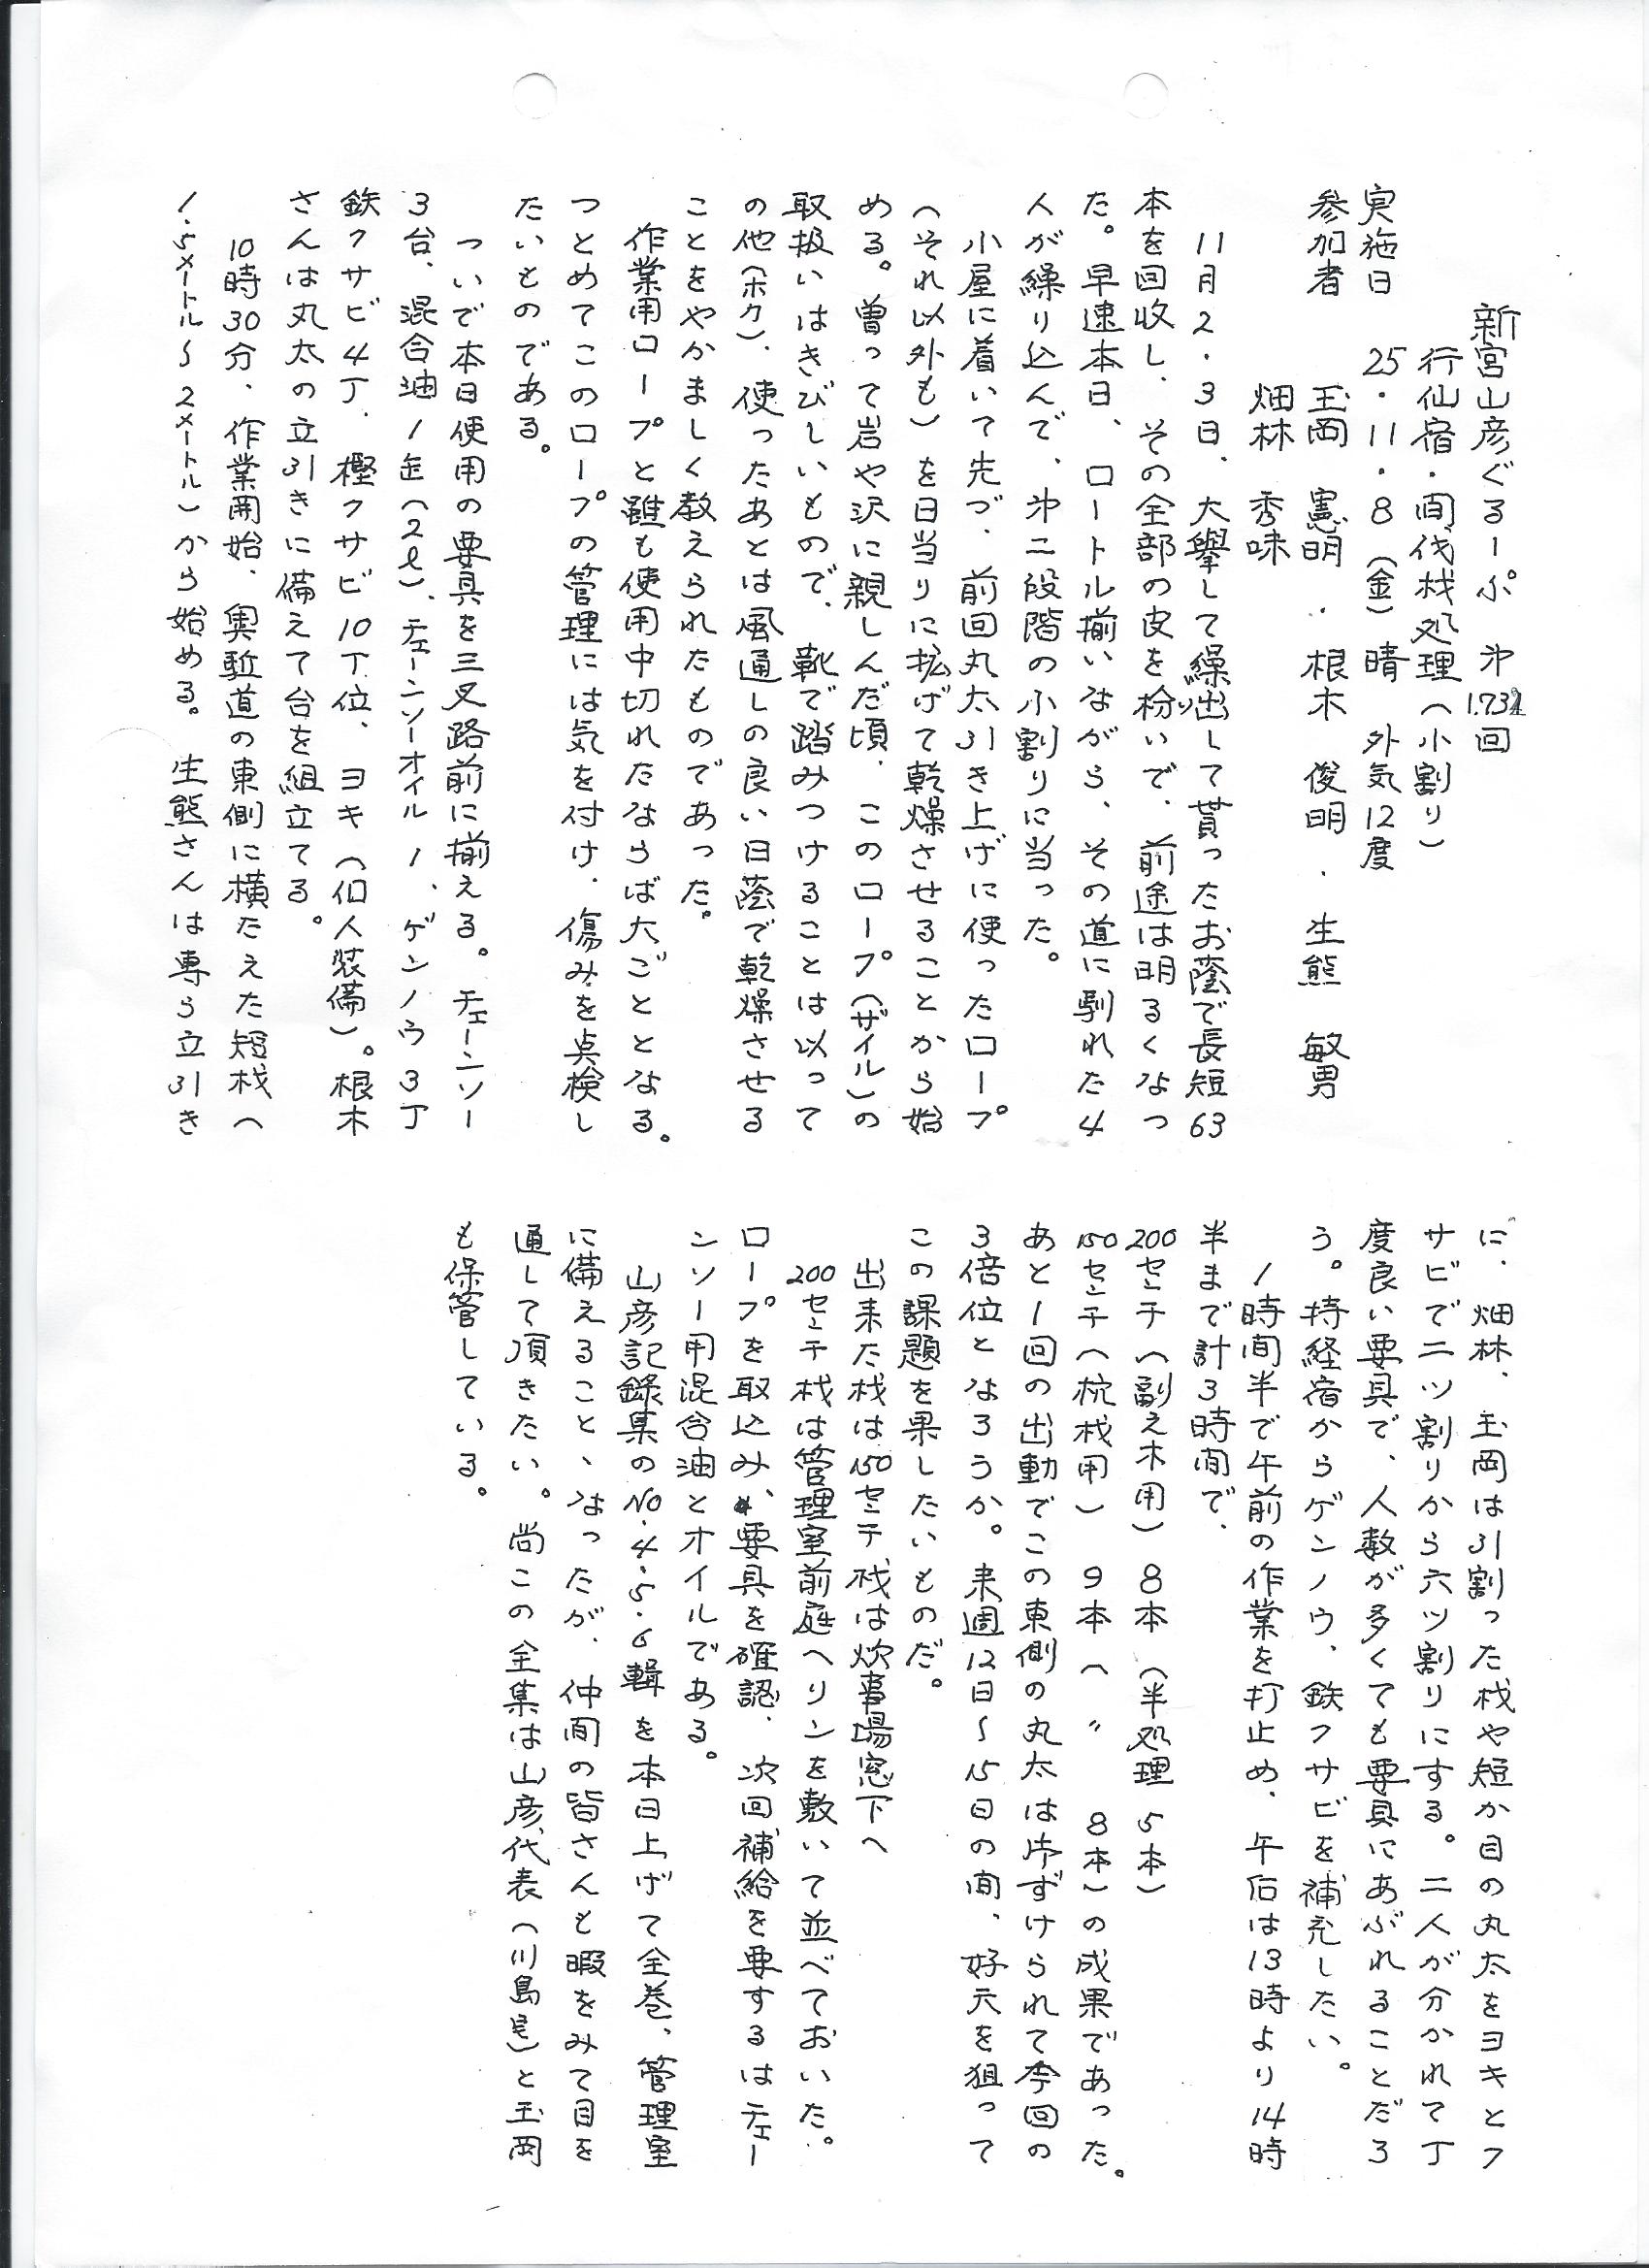 新宮山彦ぐるーぷ 第1.731回
行仙宿・間伐材処理(小割り)
実施日 25・11・8(金)晴 外気12度
参加者 玉岡 憲明・根木 俊明・生熊 敏男
畑林 秀味
11月2・3日、大擧して繰出して貰ったお蔭で長短63
本を回収し、その全部の皮を枌(ソ)いで、前途は明るくなっ
た。早速本日、ロートル揃いながら、その道に馴れた4
人が繰り込んで、第二段階の小割りに当った。
小屋に着いて先づ、前回丸太引き上げに使ったロープ
(それ以外も)を日当りに拡げて乾燥させることから始
める。曽って岩や沢に親しんだ頃、このロープ(ザイル)の
取扱いはきびしいもので、靴で踏みつけることは以って
の他(ホカ)、使ったあとは風通しの良い日蔭で乾燥させる
ことをやかましく教えられたものであった。
作業用ロープと雖も使用中切れたならば大ごととなる。
つとめてこのロープの管理には気を付け、傷みを点検し
たいものである。
ついで本日使用の要具を三叉路前に揃える。チェーンソー
3台、混合油1缶(2ℓ)、チェーンソーオイル1、ゲンノウ3丁
鉄クサビ4丁、樫クサビ10丁位、ヨキ(個人装備)。根木
さんは丸太の立引きに備えて台を組立てる。
10時30分、作業開始、奥駈道の東側に横たえた短材(
1.5メートル〜2メートル)から始める。生熊さんは専ら立引き
に、畑林、玉岡は引割った材や短か目の丸太をヨキとク
サビで二ツ割りから六ツ割りにする。二人が分かれて丁
度良い要具で、人数が多くても要具にあぶれることだろ
う。持経宿からゲンノウ、鉄クサビを補充したい。
1時間半で午前の作業を打止め、午后は13時より14時
半まで計3時間で、
200センチ(副え木用)8本(半処理 5本)
150センチ(杭材用)9本(〃 8本)の成果であった。
あと1回の出動でこの東側の丸太は片ずけられて今回の
3倍位となろうか。来週12日〜15日の間、好天を狙って
この課題を果したいものだ。
出来た材は150センチ材は炊事場窓下へ
200センチ材は管理室前庭へリンを敷いて並べておいた。
ロープを取込み、要具を確認、次回補給を要するはチェー
ンソー用混合油とオイルである。
山彦記錄集のNo.4.5.6輯を本日上げて全巻、管理室
に備えること、なったが、仲間の皆さんも暇をみて目を
通して頂きたい。尚この全集は山彦代表(川島宅)と玉岡
も保管している。